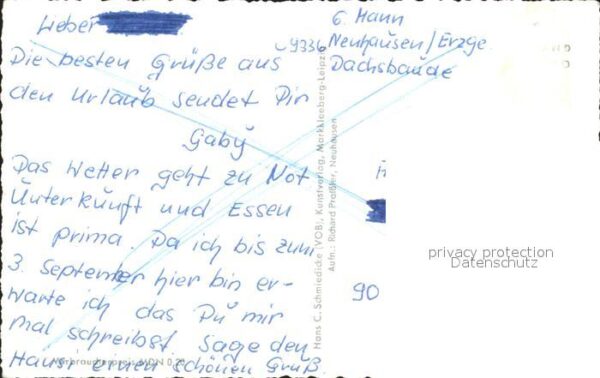 Lieber
Die besten Grüße aus
den Urlaub sendet Dir
Gaby
Das Wetter geht zu Not
Unterkunft und Essen
ist prima. Da ich bis zum
3. September hier bin er-
warte ich das Du mir
mal schreibst sage den
Hansi einen schönen Gruß.
G. Hann
9336 Neuhausen/Erzge
Dachsbaude
Hans C. Schmiedicke (VOB), Kunstverlag, Markkleeberg-Leipzig
Aufn.: Richard Neuhausen
90
privacy protection
Datenschutz